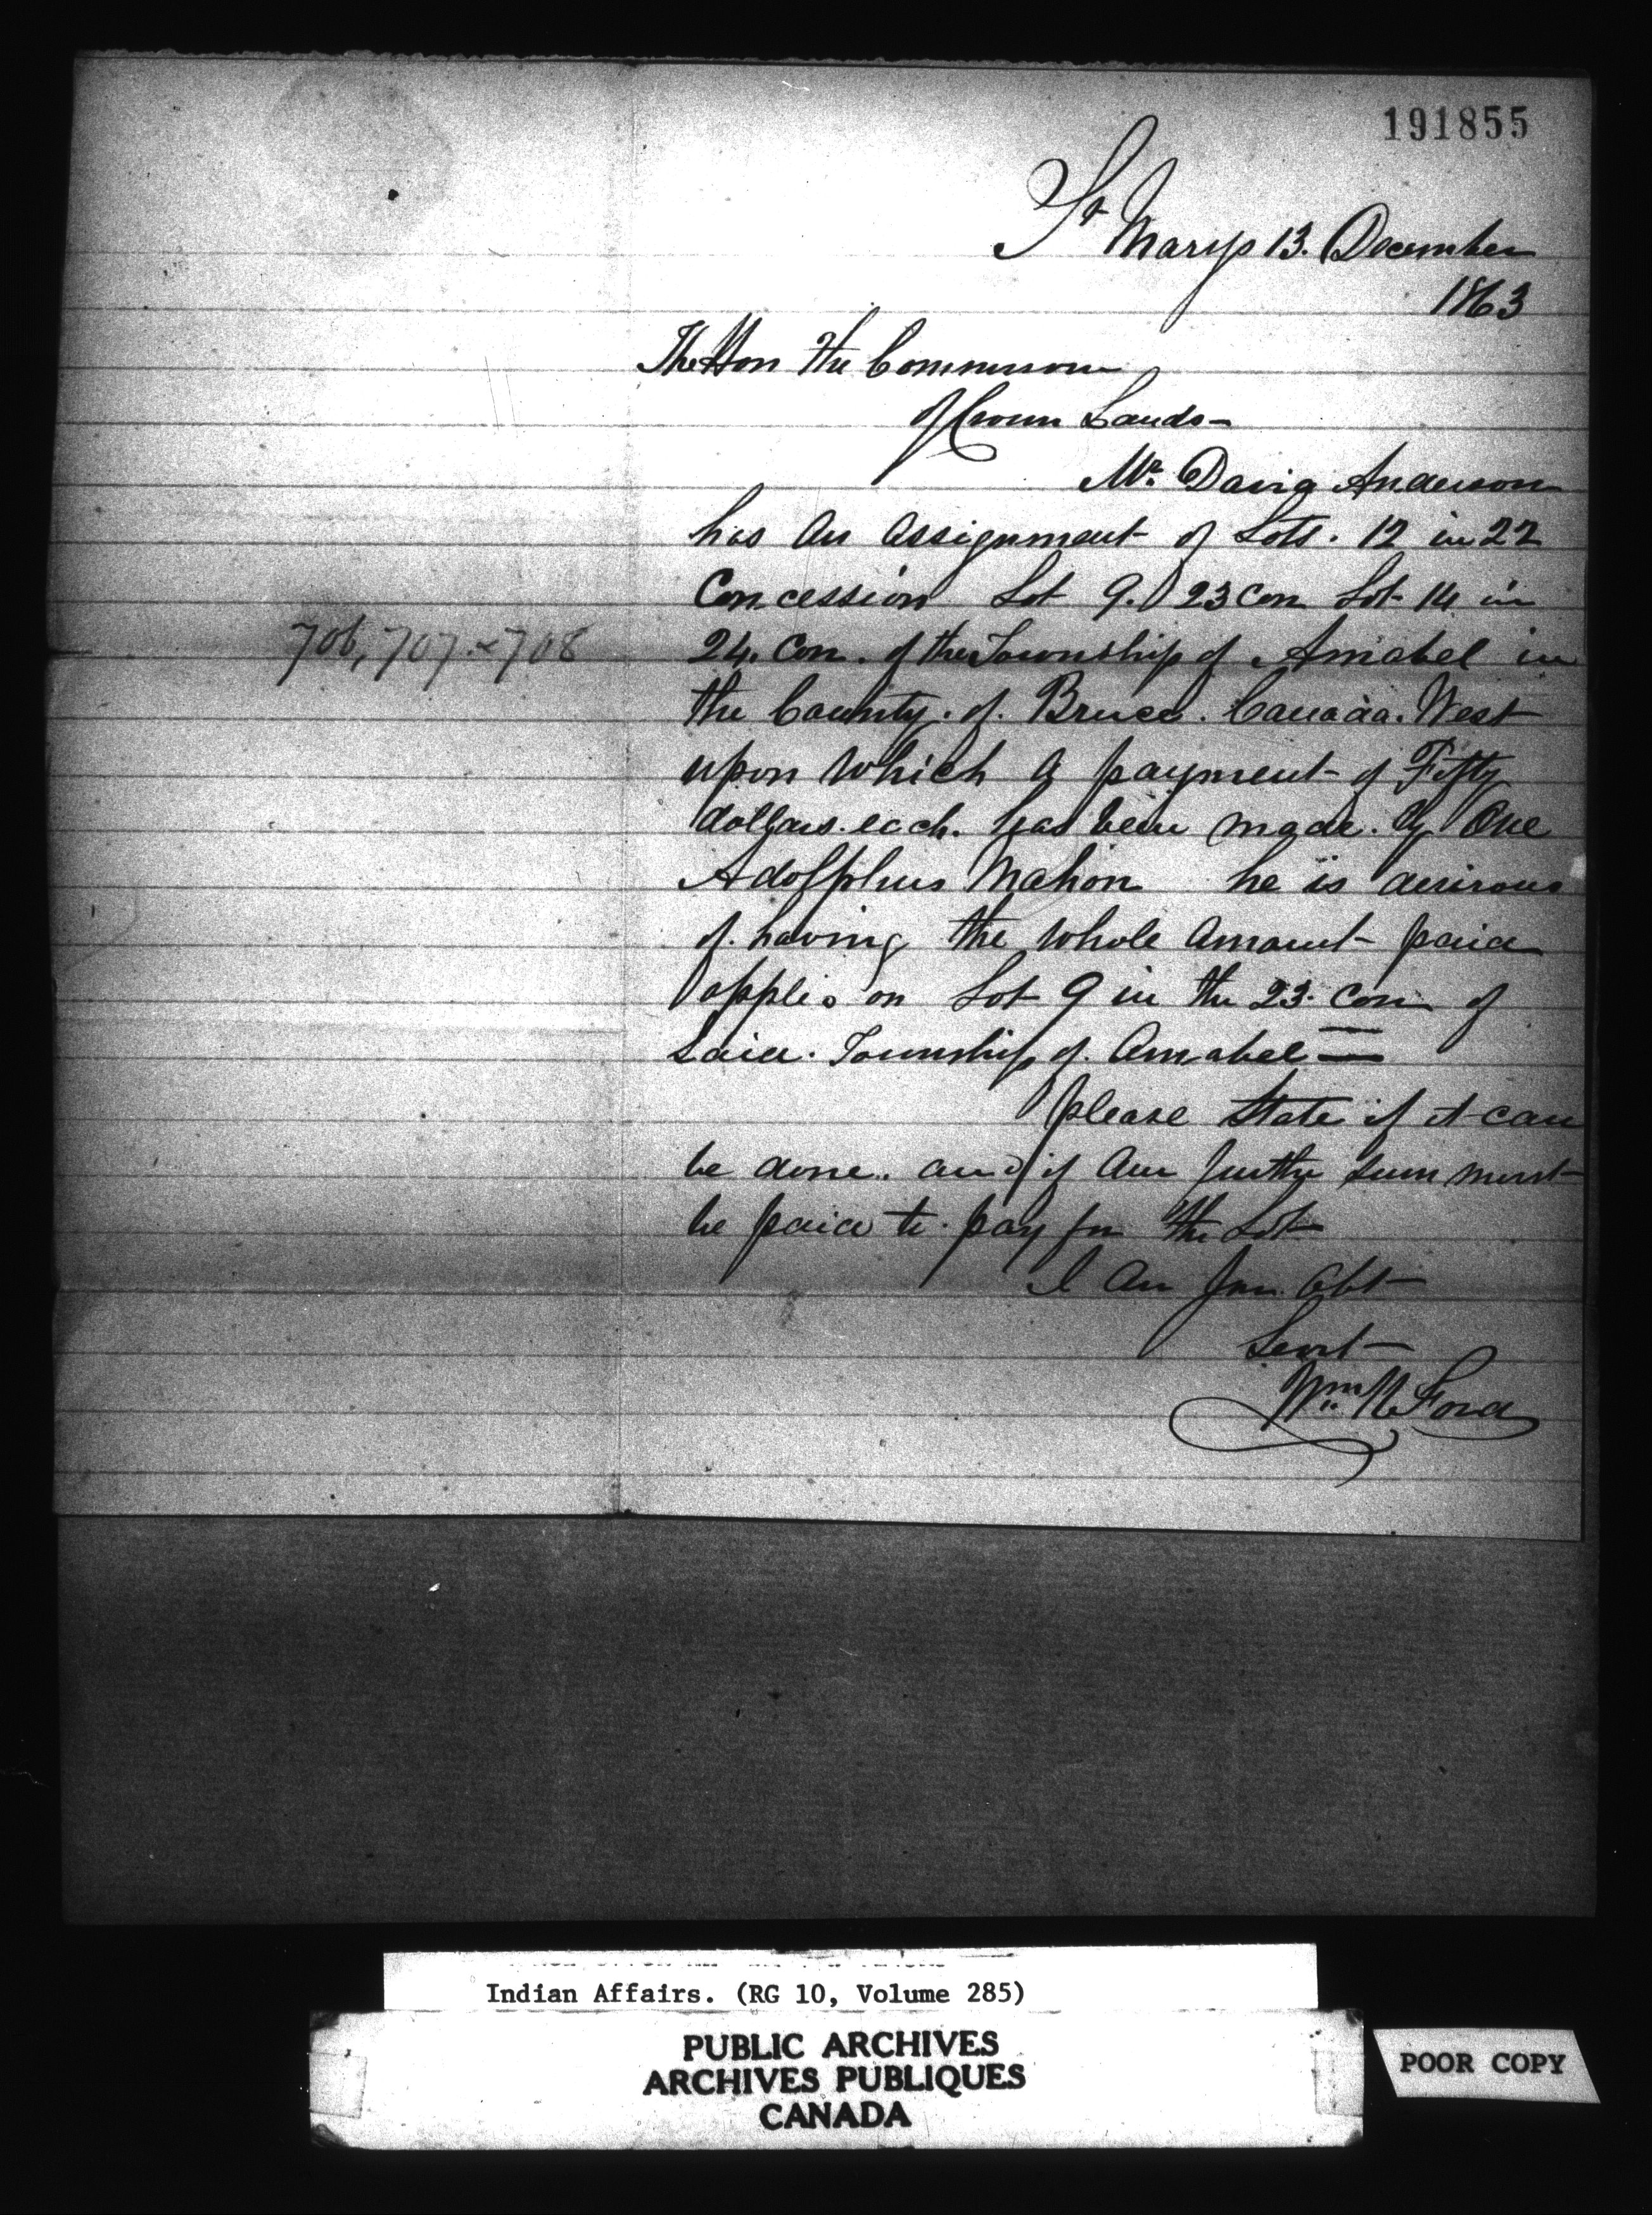 191855
St Marys 13. December
1863
The Hon the Commissioner
of Crown Lands -
Mr. David Anderson
has an assignment of Lots. 12 in 22
Concession Lot 9. 23 Con Lot 14 in
706, 707. & 708
24. Con. of the Township of Amabel in
the County. of. Bruce. Canada. West
upon which a payment of Fifty
dollars. each. has been made. by One
Adolphus Mahon he is desirous
of. having the whole amount paid
applied on Lot 9 in the 23. Con of
said. Township of. Amabel
please state if it can
be done. and if any further sum must
be paid to. pay for the Lot
I am Your. Obt
Servt
Wm. Ford
Indian Affairs. (RG 10, Volume 285)
PUBLIC ARCHIVES
ARCHIVES PUBLIQUES
CANADA
POOR COPY